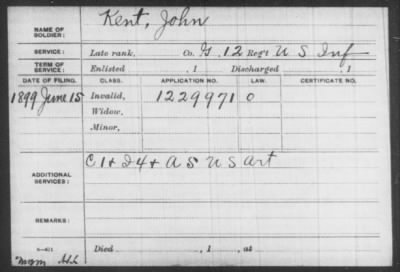 Kent, John
NAME OF SOLDIER:
SERVICE: Late rank, Co. G. 12 Reg't U S Inf
TERM OF SERVICE: Enlisted , 1 Discharged , 1
DATE OF FILING. CLASS. APPLICATION NO. LAW. CERTIFICATE NO.
1899 June 15 Invalid, 1229971 0
Widow,
Minor,
C 1 + D 4 + A 5 U S art
ADDITIONAL SERVICES:
REMARKS:
Died , 1 , at